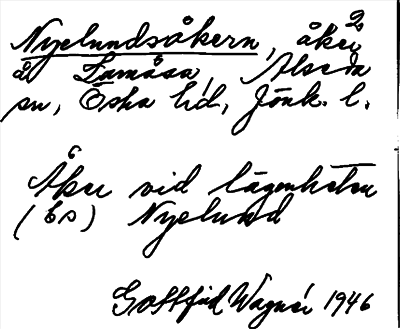 Nyelundsåkern, åker
å Lamåsa, Alseda
sn, Östra hd, Jönk. l.
Åker vid lägenheten
(bs) Nyelund
Gottfrid Wagnér 1946